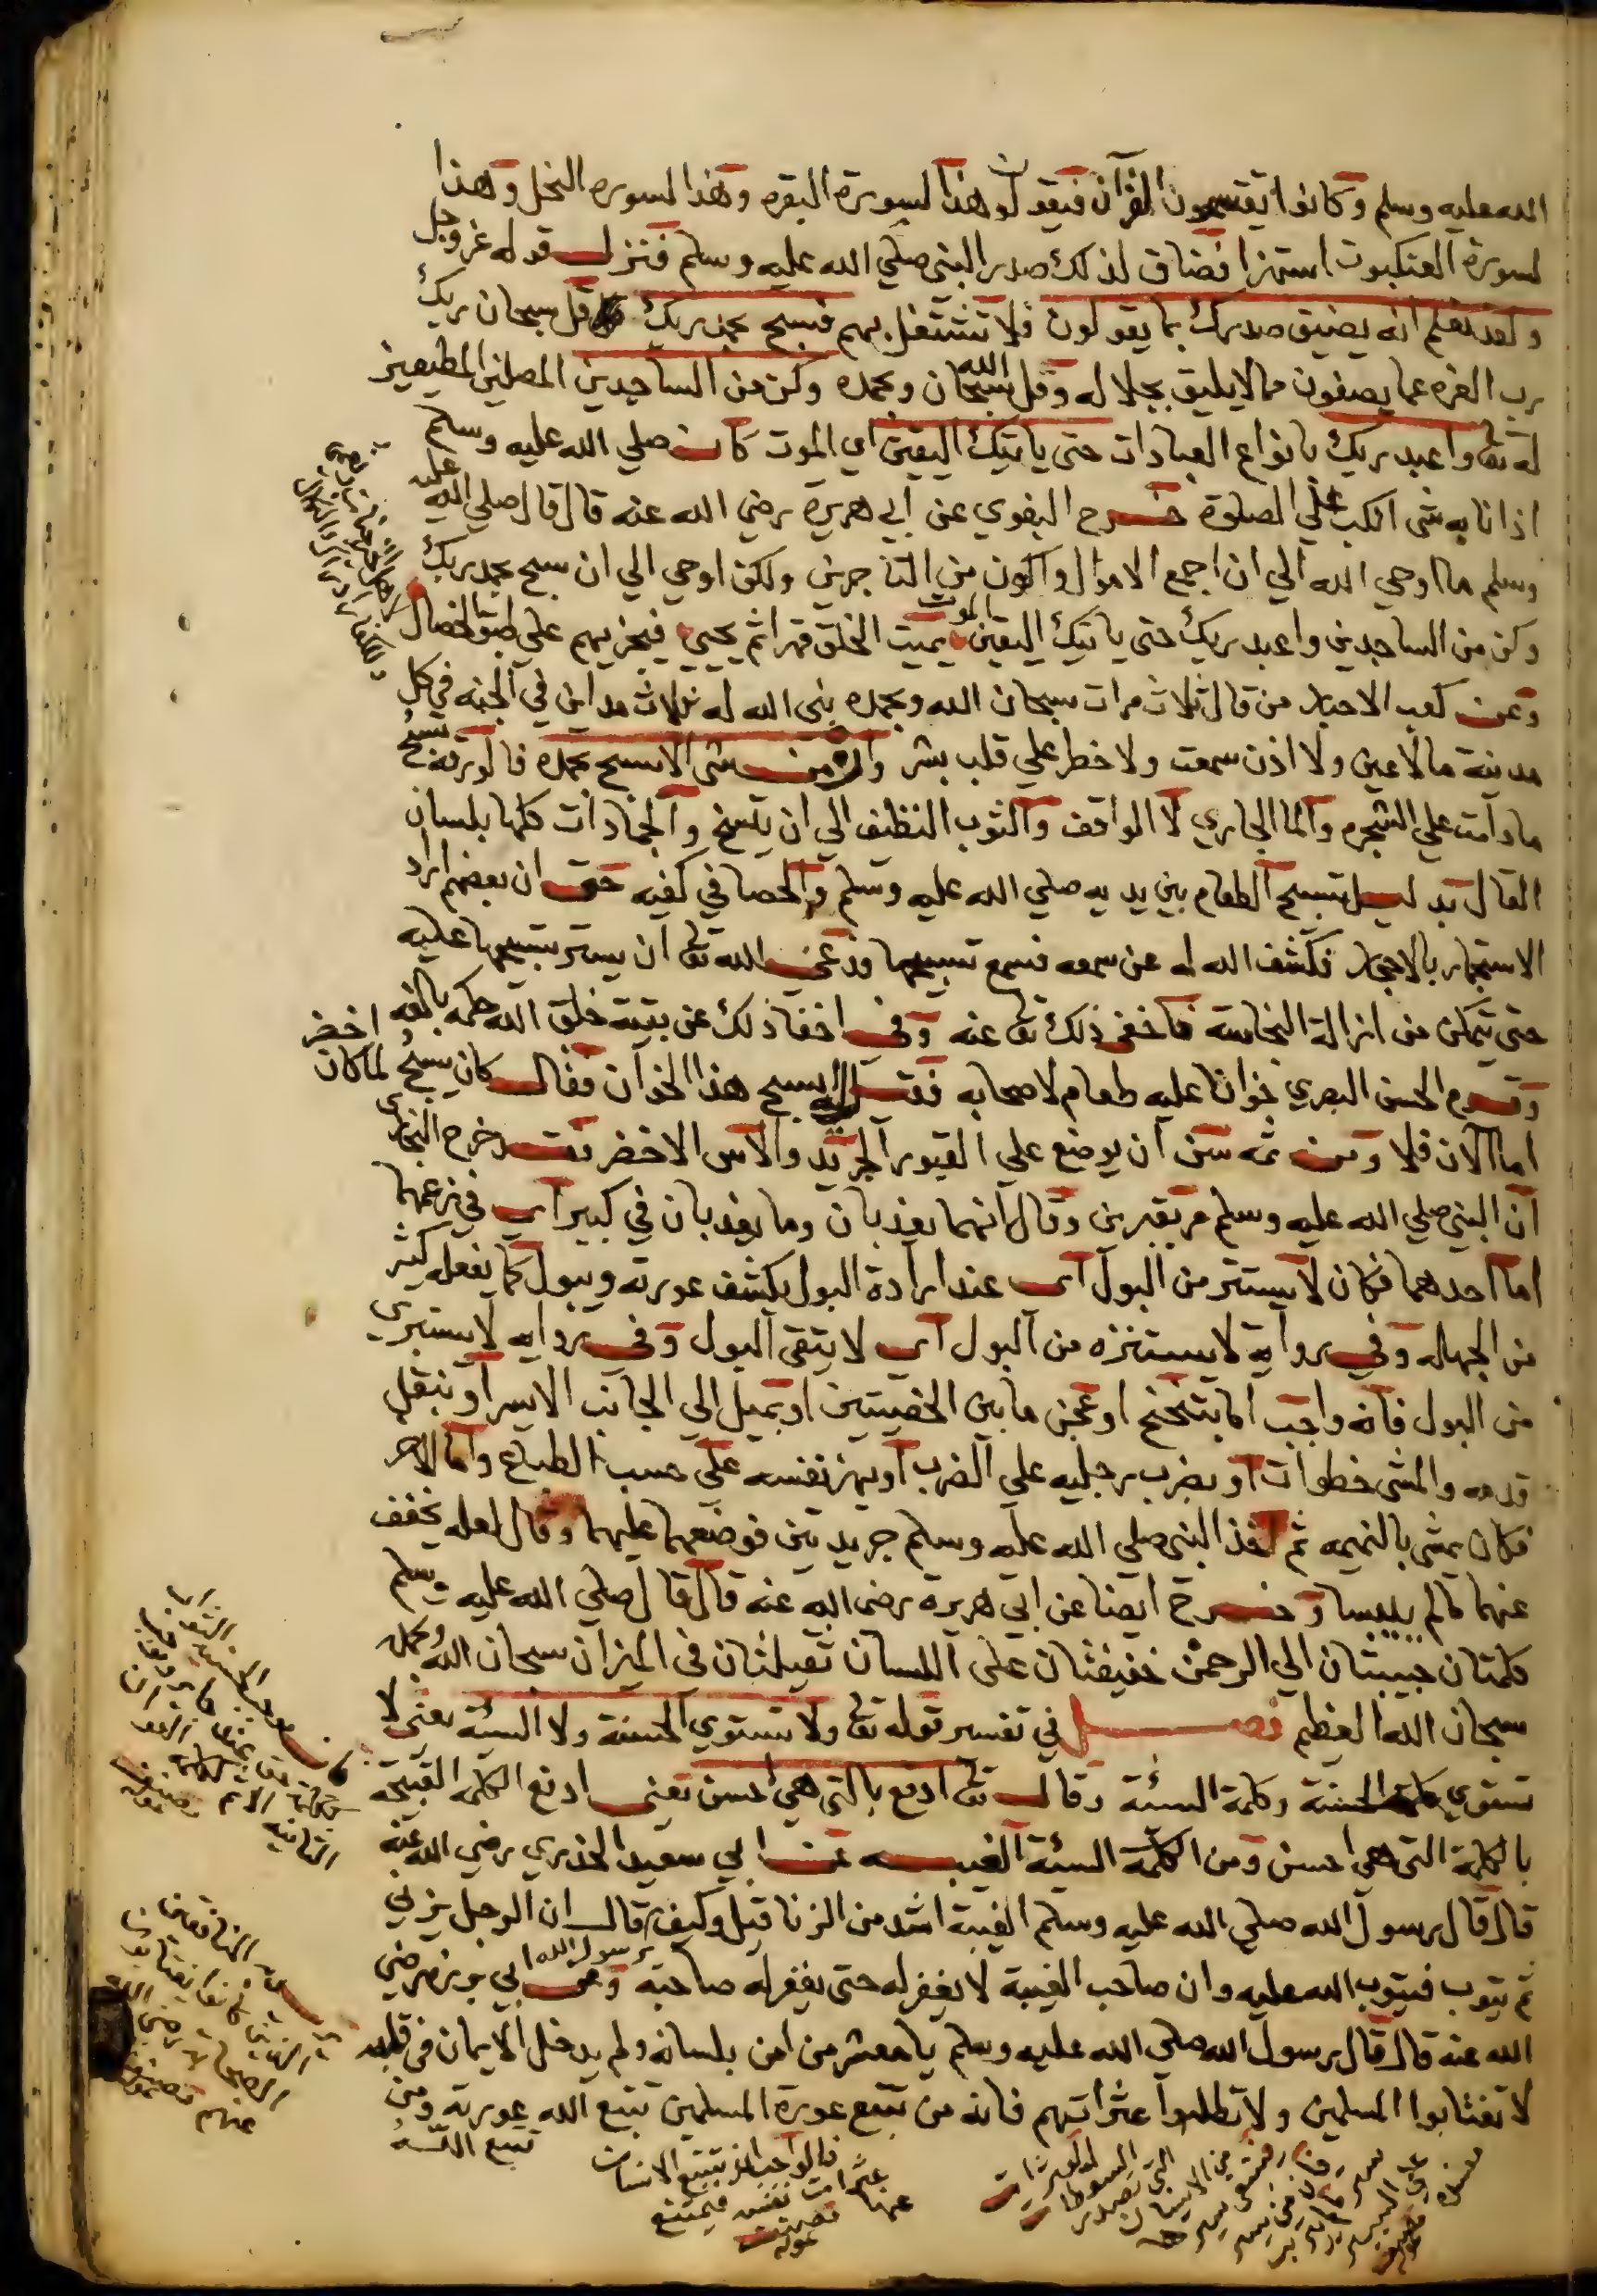 الله عليه وسلم وكانوا يقتسمون القرآن فيقولون هذا لسورة البقره وهذا لسوره النحل وهذا
لسورة العنكبوت استهزا فضاق لذلك صدر النبي صلي الله عليه وسلم فنزل قوله عزوجل
ولقد نعلم انه يضيق صدرك بما يقولون فلا تشتغل بهم فسبح بحمد ربك قل سبحان ربك
رب العزه عما يصفون مما لا يليق بجلاله وقل سبحان الله وبحمده وكن من الساجدين المصلين المطيعين
له تعا واعبد ربك بانواع العبادات حتى ياتيك اليقين اي الموت كان صلي الله عليه وسلم
اذا نابه شى انكب علي الصلوة خرج البغوي عن ابي هريرة رضي الله عنه قال قال صلي الله عليه
وسلم ما اوحي الله الي ان اجمع الاموال واكون من التاجرين ولكن اوحي الي ان سبح بحمد ربك
وكن من الساجدين واعبد ربك حتى ياتيك اليقين الموت يميت الخلق قهرا ثم يحيي فيجزيهم علي طبق الخصال
وعن كعب الاحبار من قال ثلاث مرات سبحان الله وبحمده بنى الله له ثلاث مداين في الجنه في كل
مدينة ما لا عين ولا اذن سمعت ولا خطر علي قلب بشر وان من شى الا يسبح بحمده فالورقه تسبح
ما دامت علي الشجره والما الجاري لا الواقف والثوب النظيف الي ان يتسخ والجمادات كلها بلسان
القال بدليل تسبيح الطعام بين يديه صلي الله عليه وسلم والحصا في كفيه حتى ان بعضهم اراد
الاستجمار بالاحجار فكشف الله له عن سمعه فسمع تسبيحها فدعى الله تعا ان يستر تسبيحها عليه
حتى يتمكن من ازالة النجاسة فاخفى ذلك تعا عنه وفى اخفا ذلك عن بقية خلق الله حكمه بالغه
وقدم الحسن البصري خوانا عليه طعام لاصحابه فقيل ايسبح هذا الخوان فقال كان يسبح لما كان اخضر
اما الآن فلا ومن ثمه سن ان يوضع علي القبور الجريد والاس الاخضر فقد خرج البخارى
ان النبي صلي الله عليه وسلم مر بقبرين وقال انهما يعذبان وما يعذبان في كبير اى في زعمهما
اما احدهما فكان لا يستتر من البول اى عند ارادة البول يكشف عورته ويبول كما يفعله كثير
من الجهاله وفي رواية لا يستنزه من البول اى لا يتقى البول وفى روايه لا يستبري
من البول فانه واجب اما بتنحنح او عجن ما بين الخصيتين او بميل الي الجانب الايسر او بنقل
قدمه والمشى خطوات او بضرب رجليه علي الضرب او بهز نفسه علي حسب الطباع واما الاخر
فكان يمشى بالنميمه ثم اخذ النبي صلي الله عليه وسلم جريدتين فوضعهما عليهما وقال لعله يخفف
عنهما مالم ييبسا وخرج ايضا عن ابي هريرة رضي الله عنه قال قال صلي الله عليه وسلم
كلمتان حبيبتان الي الرحمن خفيفتان على اللسان ثقيلتان في الميزان سبحان الله وبحمده
سبحان الله العظيم فصل في تفسير قوله تعا ولا تستوي الحسنة ولا السيئة يعني لا
تستوي كلمة الحسنة وكلمة السيئة وقال تعا ادفع بالتي هي احسن يعني ادفع الكلمه القبيحة
بالكلمة التي هي احسن ومن الكلمة السيئة الغيبه عن ابي سعيد الخذري رضي الله عنه
قال قال رسول الله صلي الله عليه وسلم الغيبة اشد من الزنا قيل وكيف يرسول الله قال ان الرجل يزني
ثم يتوب فيتوب الله عليه وان صاحب الغيبة لا يغفر له حتى يغفر له صاحبه وعن ابي برزه رضي
الله عنه قال قال رسول الله صلي الله عليه وسلم يا معشر من امن بلسانه ولم يدخل الايمان في قلبه
لا تغتابوا المسلمين ولا تطلبوا عثراتهم فانه من تتبع عورة المسلمين تتبع الله عورته ومن
تتبع الله
فالواجب ان يتتبع الانسان
عثرات نفسه فيمتنع
عنها